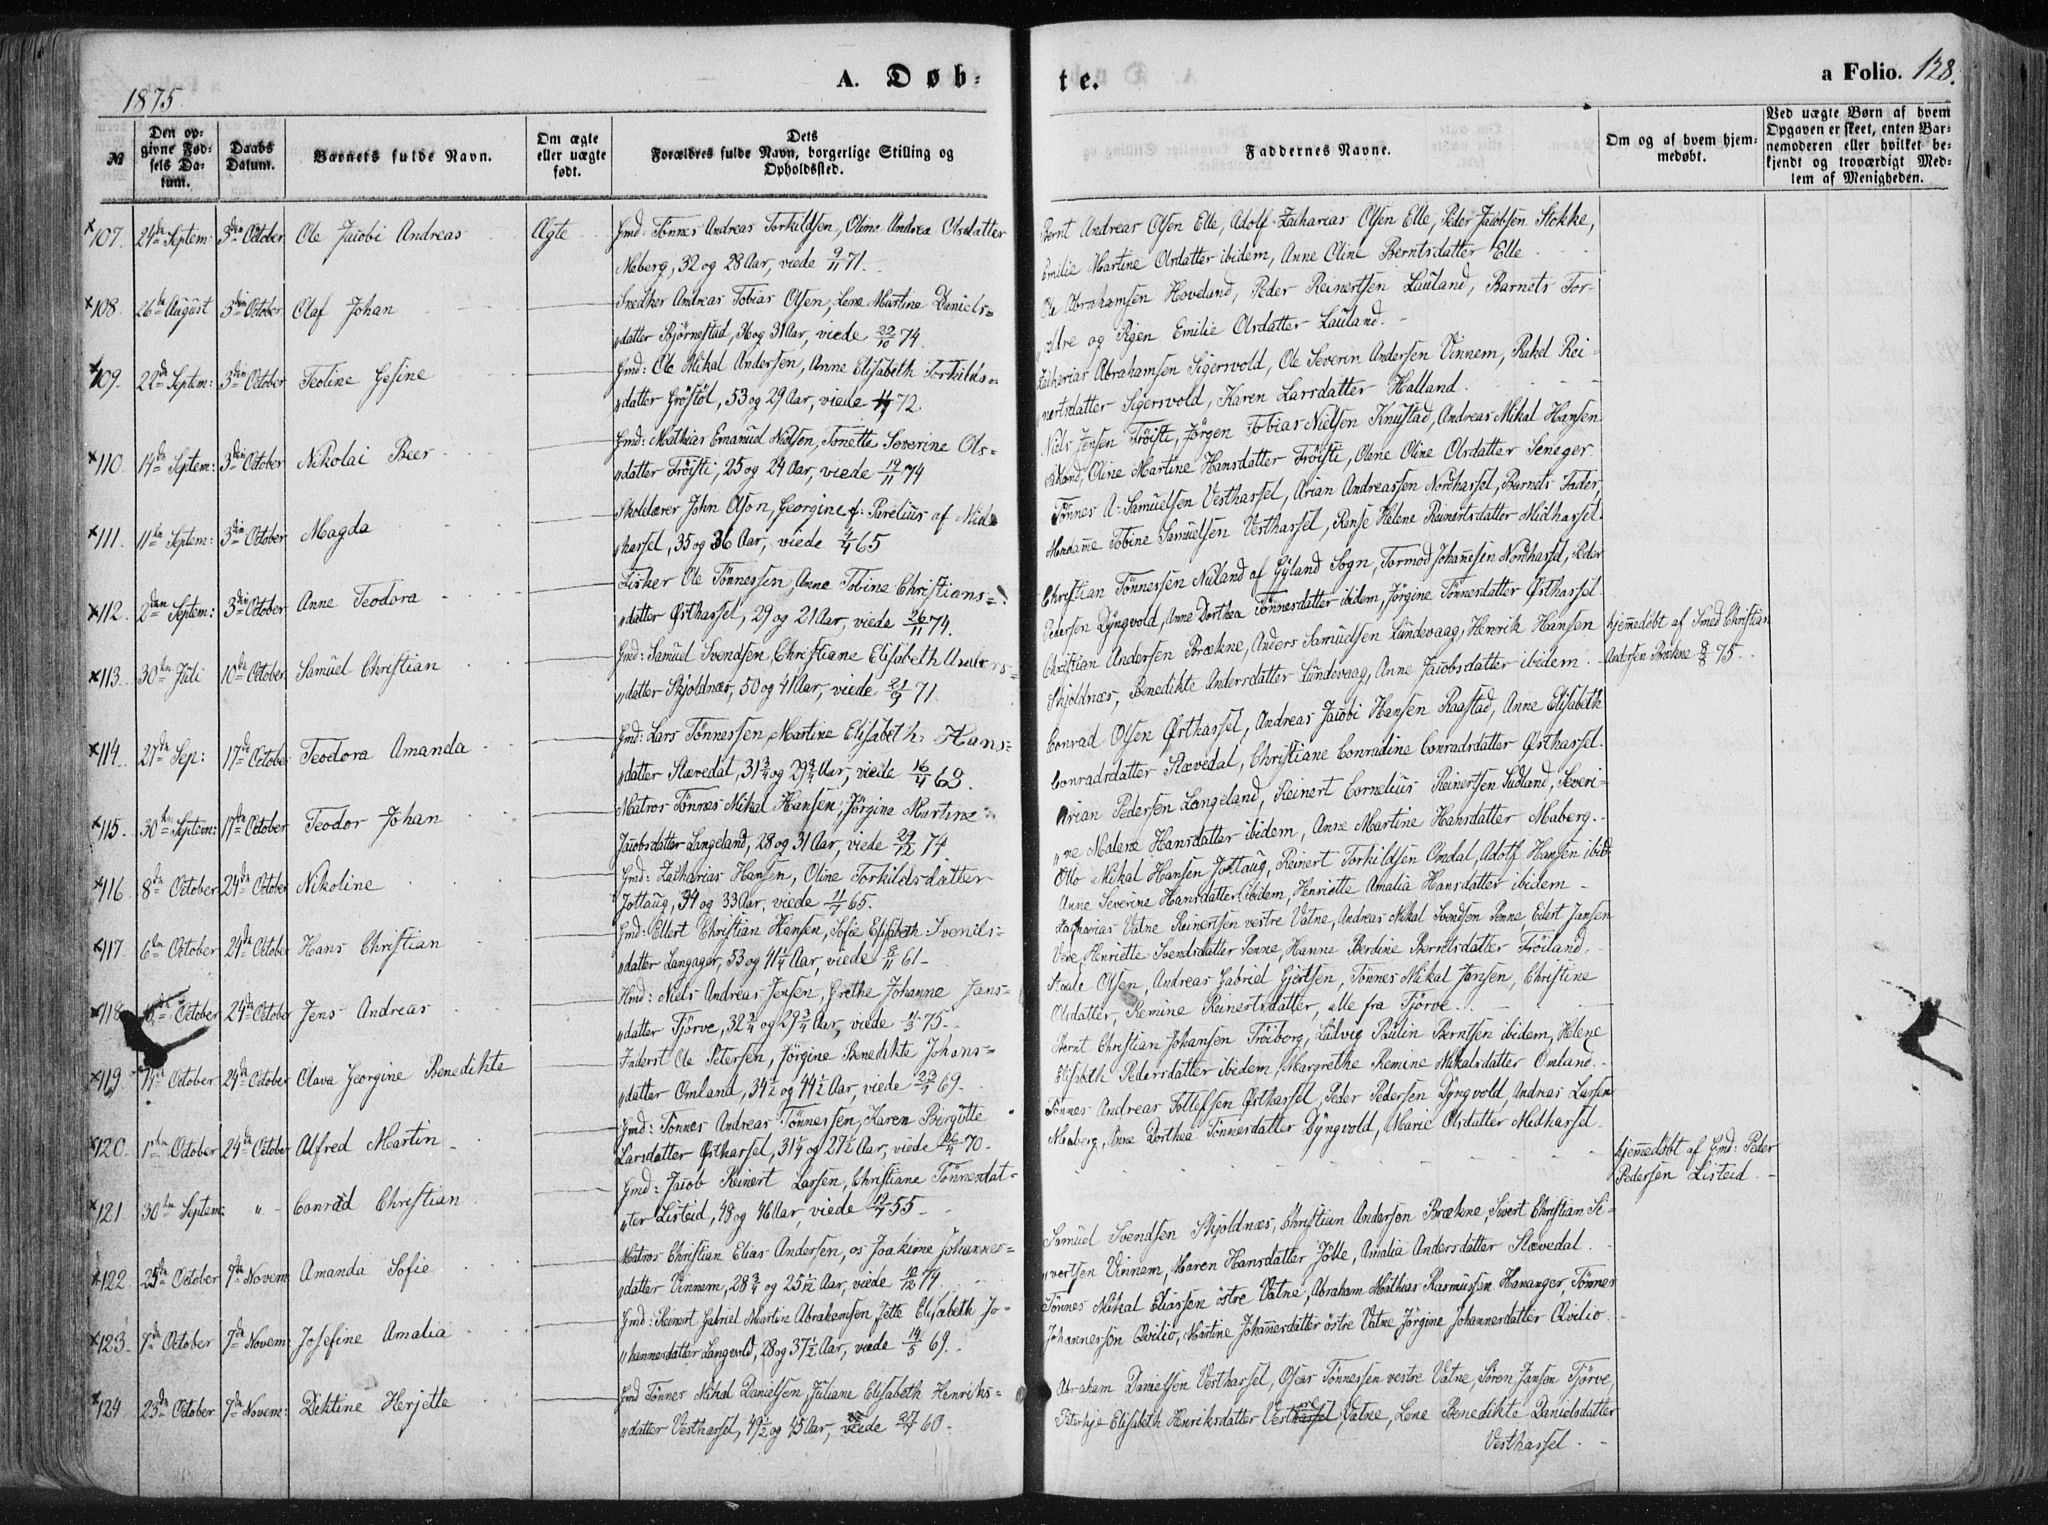 1875.
A. Døb-
te.
a Folio. 128.
№
Den op-
givne Fød-
sels Da-
tum.
Daabs
Datum.
Barnets fulde Navn.
Om ægte
eller uægte
født.
Dets
Forældres fulde Navn, borgerlige Stilling og
Opholdssted.
Faddernes Navne.
Om og af hvem hjem-
medøbt.
Ved uægte Børn af hvem
Opgaven er skeet, enten Bar-
nemoderen eller hvilket be-
kjendt og troværdigt Med-
lem af Menigheden.
107. 24de Septem: 3die October Ole Jacobi Andreas Ægte Gmd: Tönnes Andreas Torkildsen, Oline Andrea Olsdatter
Maberg, 32 og 28 Aar, viede 9/11 71.
Bernt Andreas Olsen Elle, Adolf Zacharias Olsen Elle, Peder Jacobsen Stokke,
Emilie Martine Olsdatter ibidem, Anne Oline Berntsdatter Elle
108. 26de August 3die October Olaf Johan Snedker Andreas Tobias Olsen, Lene Martine Daniels-
datter Björnestad, 36 og 31 Aar, viede 22/10 74.
Ole Abrahamsen Hoveland, Peder Reinertsen Lauland, Barnets For-
ældre og Pigen Emilie Olsdatter Lauland.
109. 22de Septem: 3die October Teoline Gesine Gmd: Ole Mikal Andersen, Anne Elisabeth Torkilds-
datter Gröstöl, 53 og 29 Aar, viede 72.
Zacharias Abrahamsen Sigersvold, Ole Severin Andersen Vinnem, Rakel Rei-
nertsdatter Sigersvold, Karen Larsdatter Halland.
110. 14de Septem: 3die October Nikolai Beer Gmd: Mathias Emanuel Nielsen, Tonette Severine Ols-
datter Tröisti, 25 og 24 Aar, viede 74
Niels Jensen Tröisti, Jörgen Tobias Nielsen Knustad, Andreas Mikal Hansen
Oline Martine Hansdatter Tröisti, Olene Oline Olsdatter Seneger.
111. 11te Septem: 3die October Magda Skolelærer John Olson, Georgine f. Parelius af Mid-
hassel, 35 og 36 Aar, viede 65
Tönnes A. Samuelsen Vesthassel, Arian Andreassen Nordhassel, Barnets Fader,
Madame Tobine Samuelsen Vesthassel, Rense Helene Reinertsdatter Midhassel.
112. 2den Septem: 3die October Anne Teodora Fisker Ole Tönnessen, Anne Tobine Christians-
datter Østhassel, 29 og 21 Aar, viede 26/11 74.
Christian Tönnessen Nuland af Gyland Sogn, Tormod Johannesen Nordhassel, Peder
Pedersen Dyngvold, Anne Dorthea Tönnesdatter ibidem, Jörgine Tönnesdatter Østhassel.
113. 30te Juli 10de October Samuel Christian Gmd: Samuel Svendsen, Christiane Elisabeth Anders-
datter Skjoldnæs, 50 og 41 Aar, viede 21/9 71.
Christian Andersen Brækne, Anders Samuelsen Lundevaag, Henrik Hansen
Skjoldnæs, Benedikte Andersdatter Lundevaag, Anne Jacobsdatter ibidem.
hjemmedøbt af Smed Christian
Andersen Brækne 8/8 75.
114. 27de Sep: 17de October Teodora Amanda Gmd: Lars Tönnessen, Martine Elisabeth Hans-
datter Stævedal, 31 3/4 og 29 3/4 Aar, viede 16/4 63.
Conrad Olsen Østhassel, Andreas Jacobi Hansen Raastad, Anne Elisabeth
Conradsdatter Stævedal, Christiane Conradine Conradsdatter Østhassel.
115. 30te Septem: 17de October Teodor Johan Matros Tönnes Mikal Hansen, Jörgine Martine
Jacobsdatter Langeland, 28 og 31 Aar, viede 29/12 74
Arian Pedersen Langeland, Reinert Cornelius Reinertsen Sudland, Severi-
ne Malene Hansdatter ibidem, Anne Martine Hansdatter Maberg.
116. 8de October 24de October Nikoline Gmd: Zacharias Hansen, Oline Torkildsdatter
Jottaug, 34 og 33 Aar, viede 65.
Otto Mikal Hansen Jottaug, Reinert Torkildsen Omdal, Adolf Hansen ibid.
Anne Severine Hansdatter ibidem, Henriette Amalia Hansdatter ibidem
117. 6te October 24de October Hans Christian Gmd: Ellert Christian Hansen, Sofie Elisabeth Svends-
datter Langager, 53 og 41 1/4 Aar, viede 8/11 61
Zacharias Vatne Reinertsen vestre Vatne, Andreas Mikal Svendsen Penne, Edert Jansen
Vere, Henriette Svendsdatter Penne, Hanne Berdine Berntsdatter Tröiland.
118. October 24de October Jens Andreas Hmd: Niels Andreas Jensen, Grethe Johanne Jans-
datter Tjörve, 32 3/4 og 29 3/4 Aar, viede 75.
Olsen, Andreas Gabriel Gjertsen, Tönnes Mikal Jansen, Christine
Olsdatter, Remine Reinertsdatter, alle fra Tjörve.
119. October 24de October Olava Georgine Benedikte Inderst Ole Petersen, Jörgine Benedikte Johans-
datter Omland, 34 1/2 og 44 1/2 Aar, viede 69.
Bernt Christian Johansen Tröiborg, Ludvig Paulin Berntsen ibidem, Helene
Elisabeth Pedersdatter ibidem, Margrethe Remine Mikalsdatter Omland.
120. 1ste October 24de October Alfred Martin Gmd: Tönnes Andreas Tönnessen, Karen Bergitte
Larsdatter Østhassel, 31 1/4 og 27 1/2 Aar, viede 70.
Tönnes Andreas Tollefsen Østhassel, Peder Pedersen Dyngvold, Andreas Larsen
Maberg, Anne Dorthea Tönnesdatter Dyngvold, Marie Olsdatter Midhassel.
121. 30te Septem: " Conrad Christian Gmd: Jacob Reinert Larsen, Christiane Tönnesdat-
ter Listeid, 48 og 46 Aar, viede 55
hjemmedøbt af Gmd: Peder
Pedersen Listeid.
122. 25de October 7de Novem: Amanda Sofie Matros Christian Elias Andersen, og Joakime Johannes-
datter Vinnem, 28 3/4 og 25 Aar, viede 74.
Samuel Svendsen Skjoldnæs, Christian Andersen Brækne, Sivert Christian Si-
vertsen Vinnem, Maren Hansdatter Jölle, Amalia Andersdatter Stævedal.
123. October 7de Novem: Josefine Amalia Gmd: Reinert Gabriel Martin Abrahamsen, Jette Elisabeth Jo-
hannesdatter Langvold, 28 og 37 1/2 Aar, viede 14/5 69.
Tönnes Mikal Eliassen östre Vatne, Abraham Mathias Rasmussen Hananger, Tönnes
Johannessen Qvilio, Martine Johannesdatter östre Vatne, Jörgine Johannesdatter Qvilio.
124. 23de October 7de Novem: Diktine Herjette Gmd Tönnes Mikal Danielsen, Juliane Elisabeth Henriks-
datter Vesthassel, 49 1/2 og 45 Aar, viede 60.
Abraham Danielsen Vesthassel, Oseas Tönnessen vestre Vatne, Sören Jansen Tjörve,
Elisabeth Henriksdatter Vatne, Lene Benedikte Danielsdatter
Vesthassel.